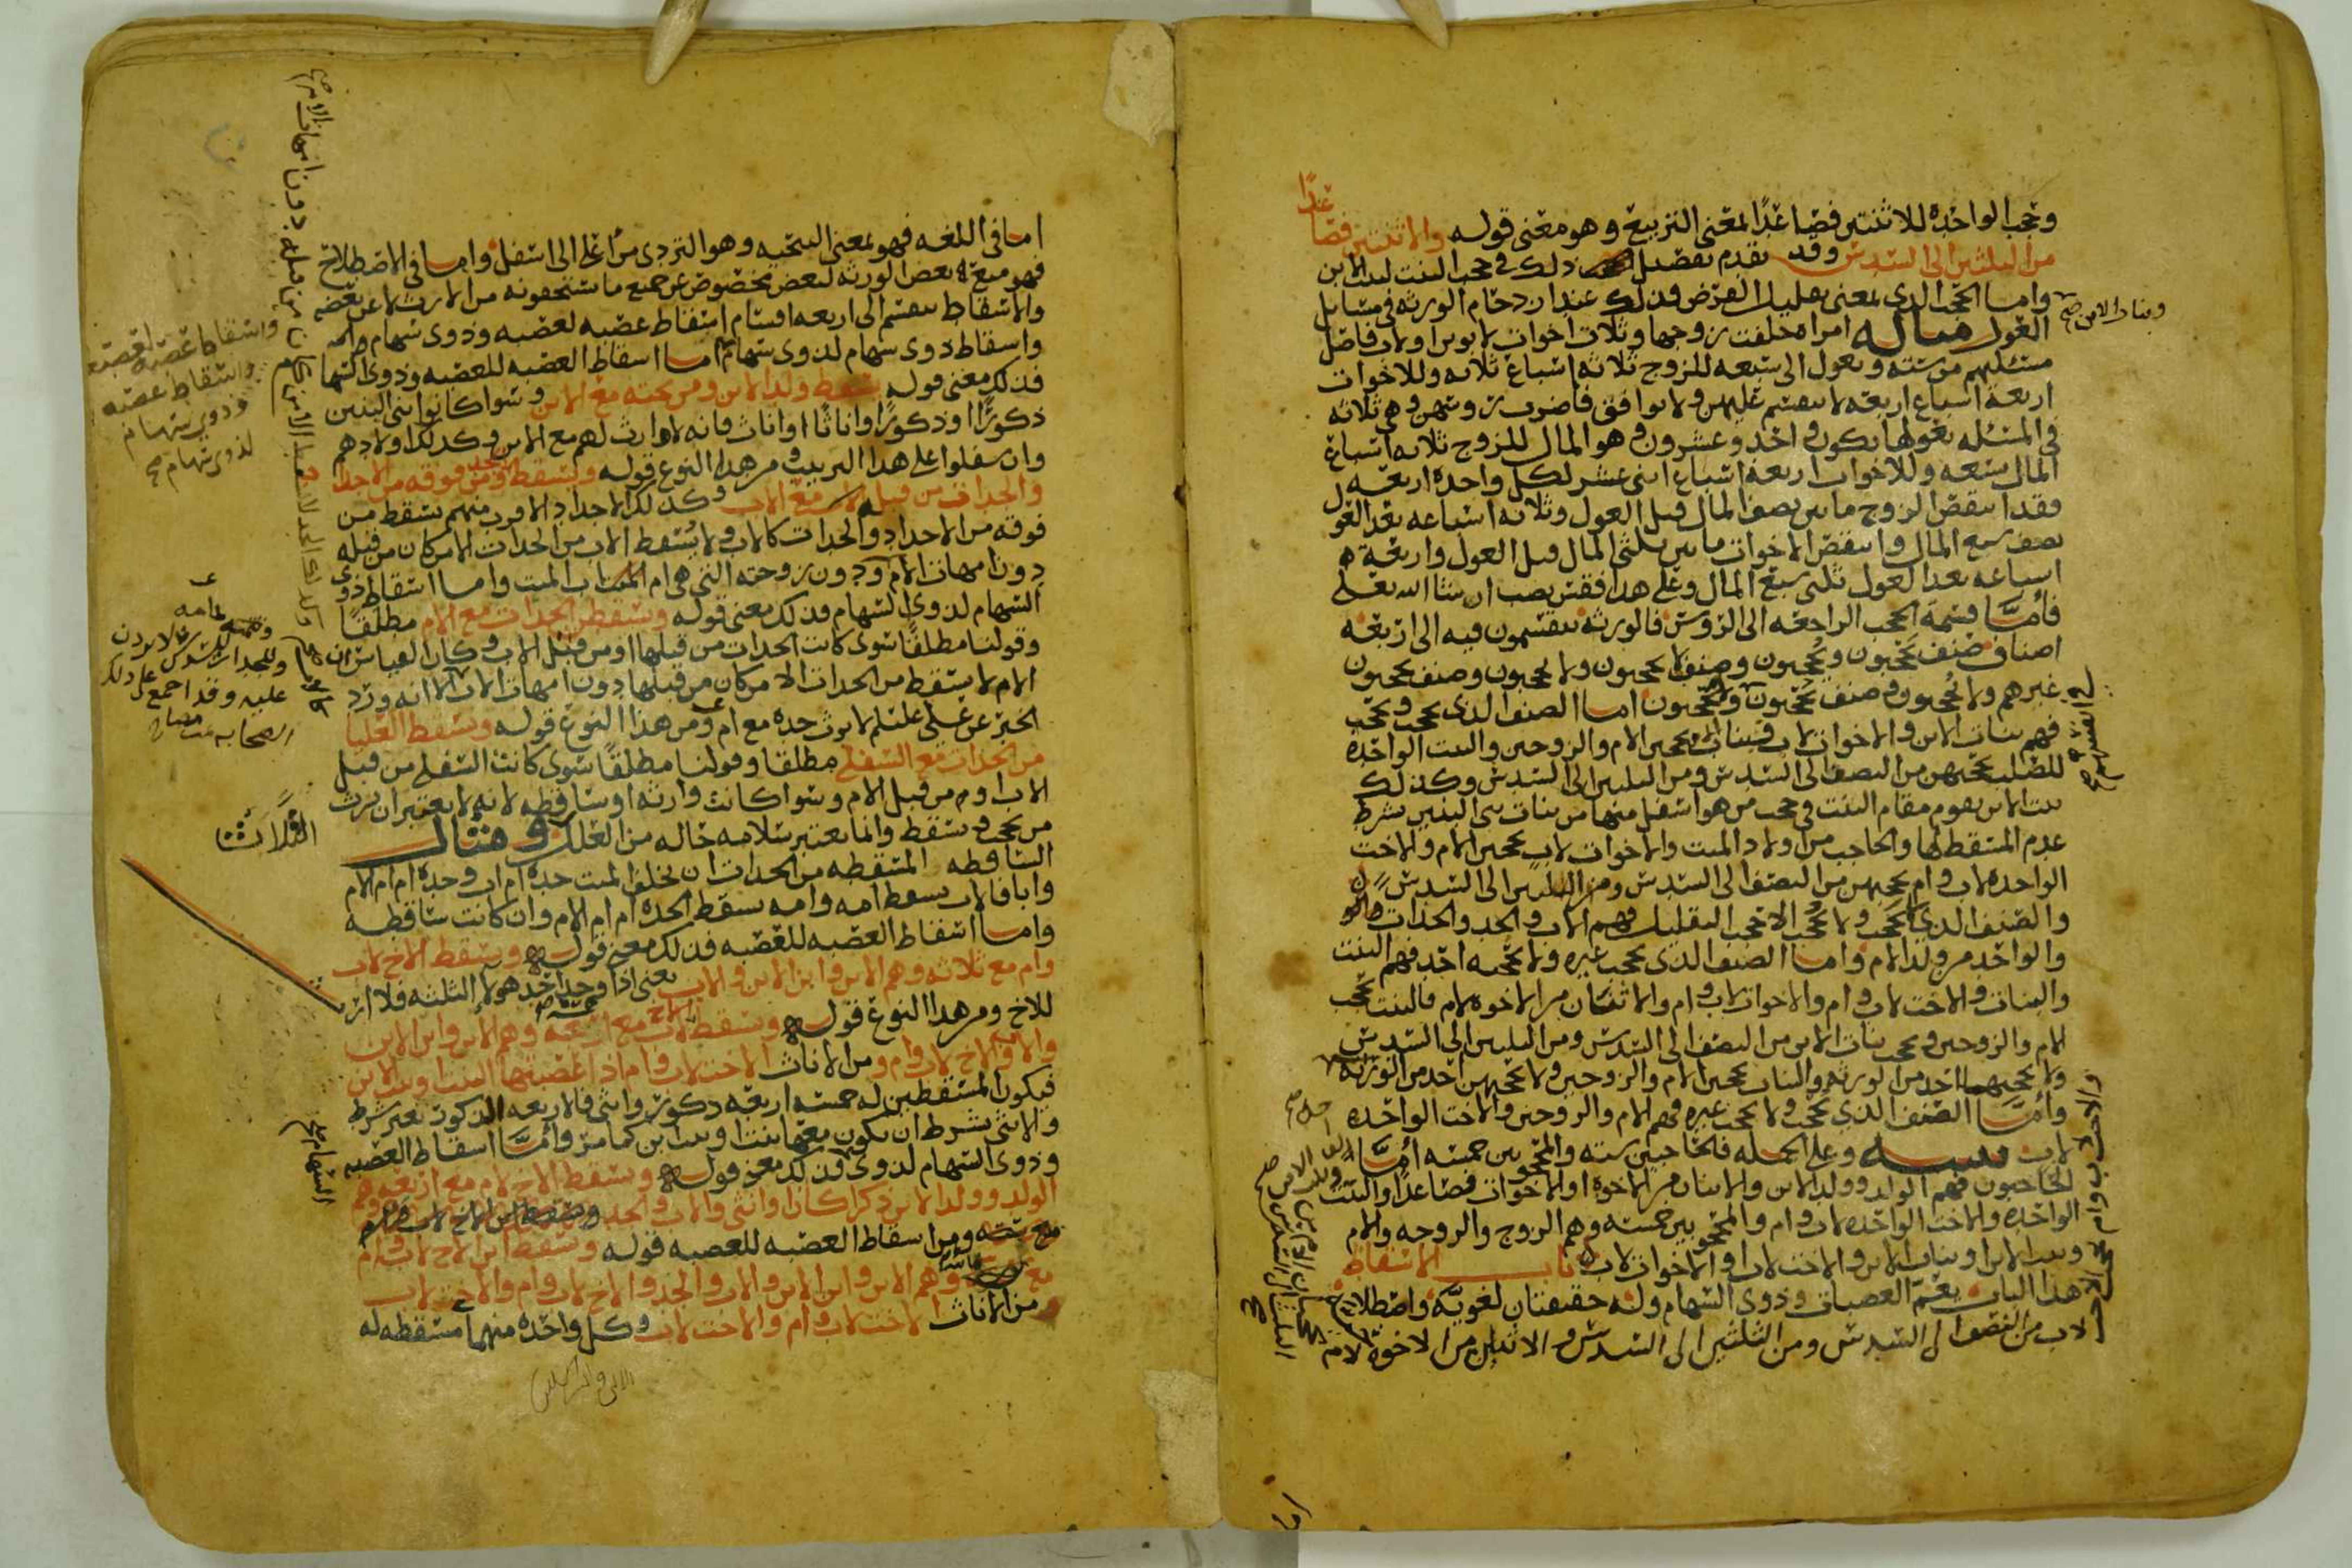 وتحجب الواحده للاثنتين فصاعدًا لمعنى التربيع وهو معنى قوله والاثنتين فصاعدًا
من الثلثين الى السدس وقد تقدم تفصيل ذلك في حجب البنت لبنت الابن
وبنات الابن صح
واما الحجب الذي لمعنى تقليل الفرض فذلك عند ازدحام الورثه في مسايل
العول مثاله امراه خلفت زوجها وثلاث اخوات لابوين او لاب فاصل
مسئلتهم من سته وتعول الى سبعه للزوج ثلاثه اسباع ثلاثه وللاخوات
اربعة اسباع اربعه لا تنقسم عليهن ولا توافق فاضرب روسهن وهي ثلاثه
في المسئله بعولها يكون احد وعشرون وهو المال للزوج ثلاثه اسباع
المال تسعه وللاخوات اربعة اسباع اثنى عشر لكل واحدة اربعه
فقد انتقص الزوج ما بين نصف المال قبل العول وثلاثه اسباعه بعد العول
نصف سبع المال وانتقص الاخوات ما بين ثلثي المال قبل العول واربعة
اسباعه بعد العول ثلثي سبع المال وعلى هذا فقس تصب ان شا الله تعالى
فأمَّا قسمة الحجب الراجعه الى الروس فالورثه ينقسمون فيه الى اربعه
اصناف صنف يَحجبون ويُحجبون وصنف لا يحجبون ولا يحجبون وصنف يحجبون
غيرهم ولا يُحجبون وصنف يحجبون ولا يحجبون اما الصنف الذي يحجب ويحجب
فهم بنات الابن والاخوات لاب فبنات الابن يحجبن الام والزوجين والبنت الواحده
للصلب تحجبهن من النصف الى السدس ومن الثلثين الى السدس وكذلك
بنت الابن تقوم مقام البنت في حجب من هو اسفل منها من بنات بني البنين بشرط
عدم المسقط لها والحاجب من اولاد الميت والاخوات لاب يحجبن الام والاخت
الواحده لاب وام تحجبهن من النصف الى السدس ومن الثلثين الى السدس
والصنف الذي لا يحجب ولا يُحجب الا حجب التقليل فهم الاب والجد والجدات
والواحد من ولد الام واما الصنف الذي يحجب غيره ولا يحجبه احد فهم البنت
والبنات والاخت لاب وام والاخوات لاب وام والاثنان من الاخوه لام فالبنت تحجب
الام والزوجين وتحجب بنات الابن من النصف الى السدس ومن الثلثين الى السدس
ولا يحجبها احد من الورثه والبنات يحجبن الام والزوجين ولا يحجبهن احد من الورثه
وأمَّا الصنف الذي يحجب ولا يحجب غيره فهم الام والزوجين والاخت الواحده
لاب وعلى الجمله فالحاجبين سته والمحجوبين خمسه أمَّا
الحاجبون فهم الولد وولد الابن والاثنان من الاخوه او الاخوات فصاعدًا والبنت
الواحده والاخت الواحده لاب وام والمحجوبين خمسه وهم الزوج والزوجه والام
وبنت الابن او بنات الابن والاخت لاب او الاخوات لاب باب الاسقاط
هذا الباب يعُمّ العصبات وذوي السهام وله حقيقتان لغويَّة واصطلاحيه
لاب من النصف الى السدس ومن الثلثين الى السدس والاثنان من الاخوة لام
اما في اللغه فهو لمعنى التنحيه وهو التردي من اعلى الى اسفل واما في الاصطلاح
فهو منع بعض الورثه لبعض مخصوص عن جميع ما يستحقونه من الارث لا عن بعضه
والاسقاط ينقسم الى اربعه اقسام اسقاط عصبه لعصبه وذوي سهام
واسقاط ذوي سهام لذوي سهام اما اسقاط العصبه للعصبه وذوي السهام
فذلك معنى قوله يسقط ولد الابن ومن تحته مع الابن وسواكانوا بني البنين
ذكورًا او ذكورًا واناثًا او اناث فانه لا وارث لهم مع الابن وكذلك اولادهم
وان سفلوا على هذا الترتيب ومن هذا النوع قوله ويسقط الجد ومن فوقه من الاجداد
والجدات من قبله مع الاب وكذلك الاجداد الاقرب منهم يسقط من
فوقه من الاجداد والجدات كالاب ولا يُسقط الاب من الجدات الا من كان من قبله
دون امهات الام ودون زوجته التي هي ام الميت واما اسقاط ذوي
السهام لذوي السهام فذلك معنى قوله وتسقط الجدات مع الام مطلقًا
وقولنا مطلقًا سوى كانت الجدات من قبلها او من قبل الاب وكان القياس ان
الام لا تسقط من الجدات الا من كان من قبلها دون امهات الاب الا انه ورد
الخبر عن علي علىلم لا ترث جده مع ام ومن هذا النوع قوله وتسقط العليا
من الجدات مع السفلى مطلقا وقولنا مطلقًا سوى كانت السفلى من قبل
الاب او من قبل الام وسواكانت وارثه او ساقطه لانه لا يعتبر ان يرث
من يحجب ويسقط وانما يعتبر سلامه حاله من العلل الثلاث ومثال
الساقطه المسقطه من الجدات ان يخلف الميت جدة ام اب وجده ام ام الام
وابا فالاب يسقط امه وامه تسقط الجده ام ام الام وان كانت ساقطه
واما اسقاط العصبه للعصبه فذلك معنى قوله ويسقط الاخ لاب
وام مع ثلاثه وهم الابن وابن الابن والاب يعني اذا وجد احد هولا الثلثه فلا ارث
للاخ ومن هذا النوع قوله ويسقط الاخ لاب مع اربعه وهم الابن وابن الابن
والاب والاخ لاب وام ومن الاناث الاخت لاب وام اذا عصبتها البنت او بنت الابن
فيكون المسقطين له خمسه اربعه ذكور وانثى فالاربعه الذكور بغير شرط
والانثى بشرط ان يكون معها بنت او بنت ابن كما مر وأمَّا اسقاط العصبه
وذوي السهام لذوي السهام فذلك معنى قوله ويسقط الاخ لام مع اربعه وهم
الولد وولد الابن ذكرا كان او انثى والاب والجد
ومن اسقاط العصبه للعصبه قوله ويسقط ابن الاخ لاب وام
مع وهم الابن وابن الابن والاب والجد والاخ لاب وام والاخ لاب
من الاناث الاخت لاب وام والاخت لاب وكل واحدة منهما مسقطه له
واسقاط عصبه لعصبه
واسقاط عصبه
وذوي سهام
لذوي سهام صح
الثَّلاَث